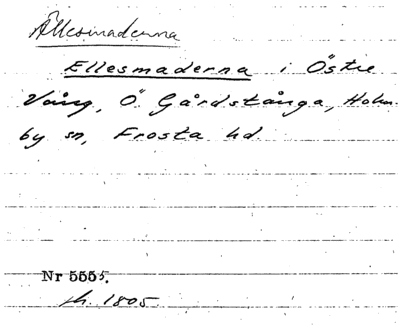 Ällesmaderna
Ellesmaderna i Östre
Vång, Ö Gårdstånga, Holm
by sn, Frosta hd.
Nr 5555.
sh. 1805